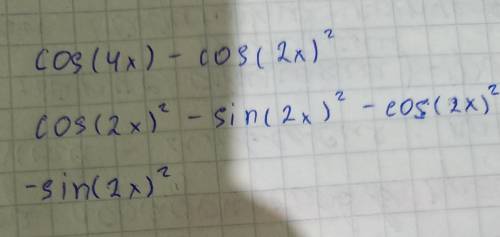 cos(4x) - cos(2x)²
cos(2x)² - sin(2x)² - cos(2x)²
-sin(2x)²